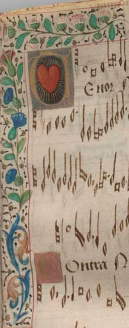 Enor
Ontra